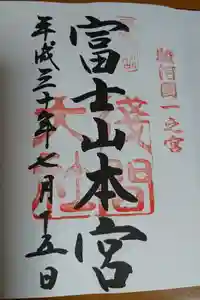 駿河國一之宮
富士山本宮
淺間大社
平成三十年七月十五日